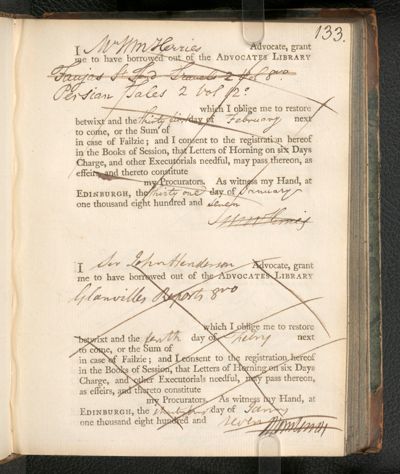 133.
I Mr Wm Herries Advocate, grant
me to have borrowed out of the ADVOCATES LIBRARY
Faujas St Fond Travels 2 Vol 8vo
Persian Tales 2 Vol 12o
which I oblige me to restore
betwixt and the thirty day of February next
to come, or the Sum of
in case of Failzie; and I consent to the registration hereof
in the Books of Session, that Letters of Horning on six Days
Charge, and other Executorials needful, may pass thereon, as
effeirs, and thereto constitute
my Procurators. As witness my Hand, at
EDINBURGH, the thirty one day of January
one thousand eight hundred and seven
I Sir John Henderson Advocate, grant
me to have borrowed out of the ADVOCATES LIBRARY
Glanvilles Reports 8vo
which I oblige me to restore
betwixt and the tenth day of next
to come, or the Sum of
in case of Failzie; and I consent to the registration hereof
in the Books of Session, that Letters of Horning on six Days
Charge, and other Executorials needful, may pass thereon,
as effeirs, and thereto constitute
my Procurators. As witness my Hand, at
EDINBURGH, the day of Janry
one thousand eight hundred and seven